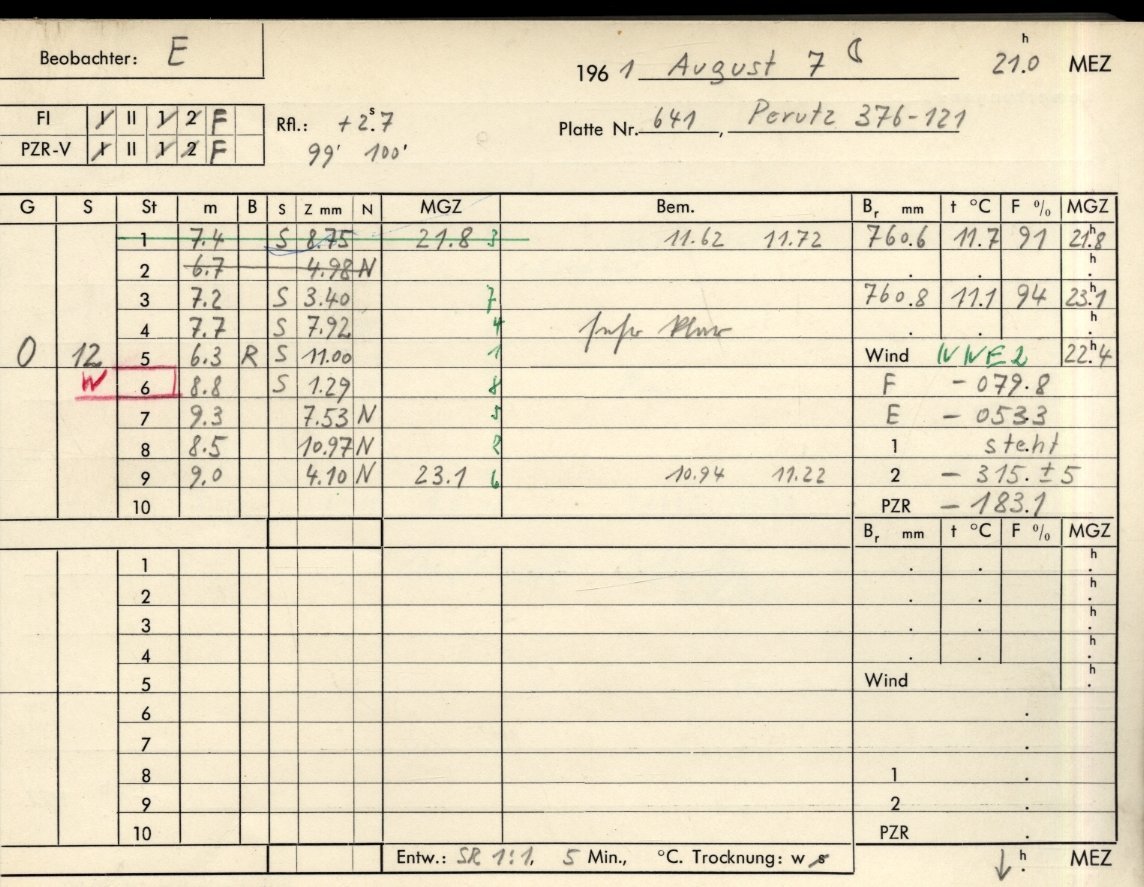 Beobachter: E
1961 August 7 ☾ 21.0 h MEZ
FI I II 1 2 F
PZR-V I II 1 2 F
Rfl.: +2.s7
99' 100'
Platte Nr. 641, Perutz 376-121
G S St m B S Z mm N MGZ Bem. Br mm t °C F % MGZ
1 7.4 S 8.75 21.8 3 11.62 11.72 760.6 11.7 91 21.h8
2 6.7 4.98 N . . h.
3 7.2 S 3.40 7 760.8 11.1 94 23.h1
4 7.7 S 7.92 4 . . h.
0 12 5 6.3 B R S 11.00 1 Wind NNE2 22.h4
W 6 8.8 S 1.29 8 F - 079.8
7 9.3 7.53 N 5 E - 053.3
8 8.5 10.97 N 2 1 steht
9 9.0 4.10 N 23.1 6 10.94 11.22 2 - 315. ± 5
10 PZR - 183.1
Br mm t °C F % MGZ
1 . . h.
2 . . h.
3 . . h.
4 . . h.
5 Wind h.
6 .
7 .
8 1 .
9 2 .
10 PZR .
Entw.: SR 1:1, 5 Min., °C. Trocknung: w s
↓ h. MEZ